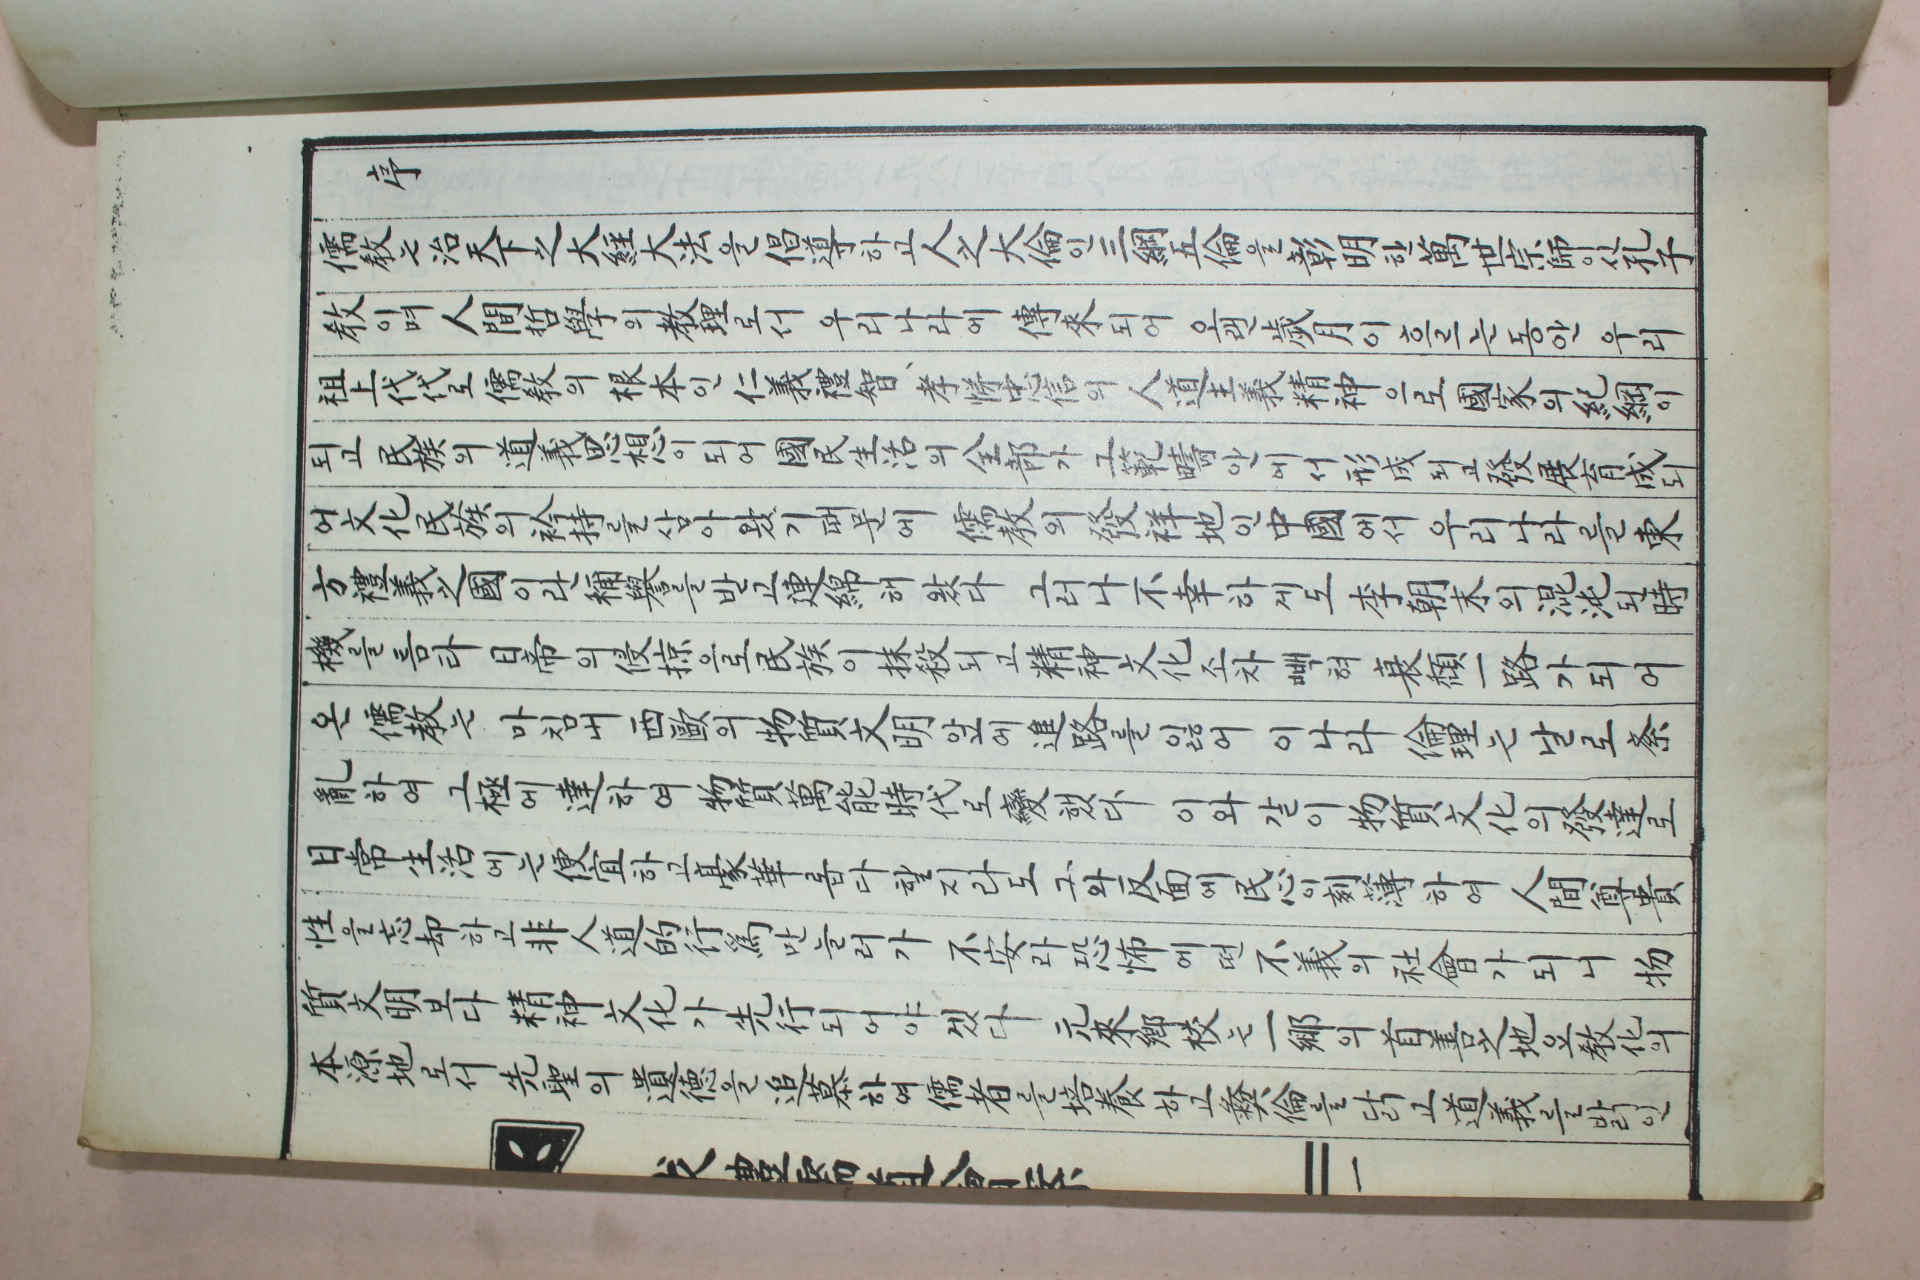 序
儒敎는 治天下之大經大法을 倡導하고 人之大倫인 三綱五倫을 彰明한 萬世宗師이신 孔子
敎이며 人間哲學의 敎理로서 우리나라에 傳來되어 오랜 歲月이 흐르는 동안 우리
祖上代代로 儒敎의 根本인 仁義禮智、孝悌忠信의 人道主義精神으로 國家의 紀綱이
되고 民族의 道義思想이 되어 國民生活의 全部가 그 範疇안에서 形成되고 發展育成되
어 文化民族의 矜持를 삼아 왔기 때문에 儒敎의 發祥地인 中國에서 우리나라를 東
方禮義之國이란 稱譽를 받고 連綿해 왔다 그러나 不幸하게도 李朝末의 混沌된 時
機를 틈타 日帝의 侵掠으로 民族이 抹殺되고 精神文化조차 빽혀 衰頹一路가 되어
온 儒敎는 마침내 西歐의 物質文明앞에 進路를 잃어 이나라 倫理는 날로 紊
亂하여 그 極에 達하여 物質萬能時代로 變했다 이와 같이 物質文化의 發達로
日常生活에는 便宜하고 豪華롭다 할지라도 그와 反面에 民心이 刻薄하여 人間尊貴
性을 忘却하고 非人道的行爲만 늘러가 不安과 恐怖에 떤 不義의 社會가 되니 物
質文明보다 精神文化가 先行되어야겠다 元來 鄕校는 一鄕의 首善之地요 敎化의
本源地로서 先聖의 遺德을 追慕하여 儒者를 培養하고 彝倫을 닭고 道義를 밝힌
一